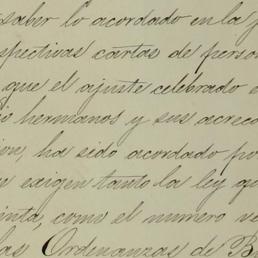 saber lo acordado en la j
spectivas cartas de person
que el ajuste celebrado
hermanos y sus acreed
ion, ha sido acordado po
n exigen tanto la ley qu
inta, como el numero ve
las Ordenanzas de B